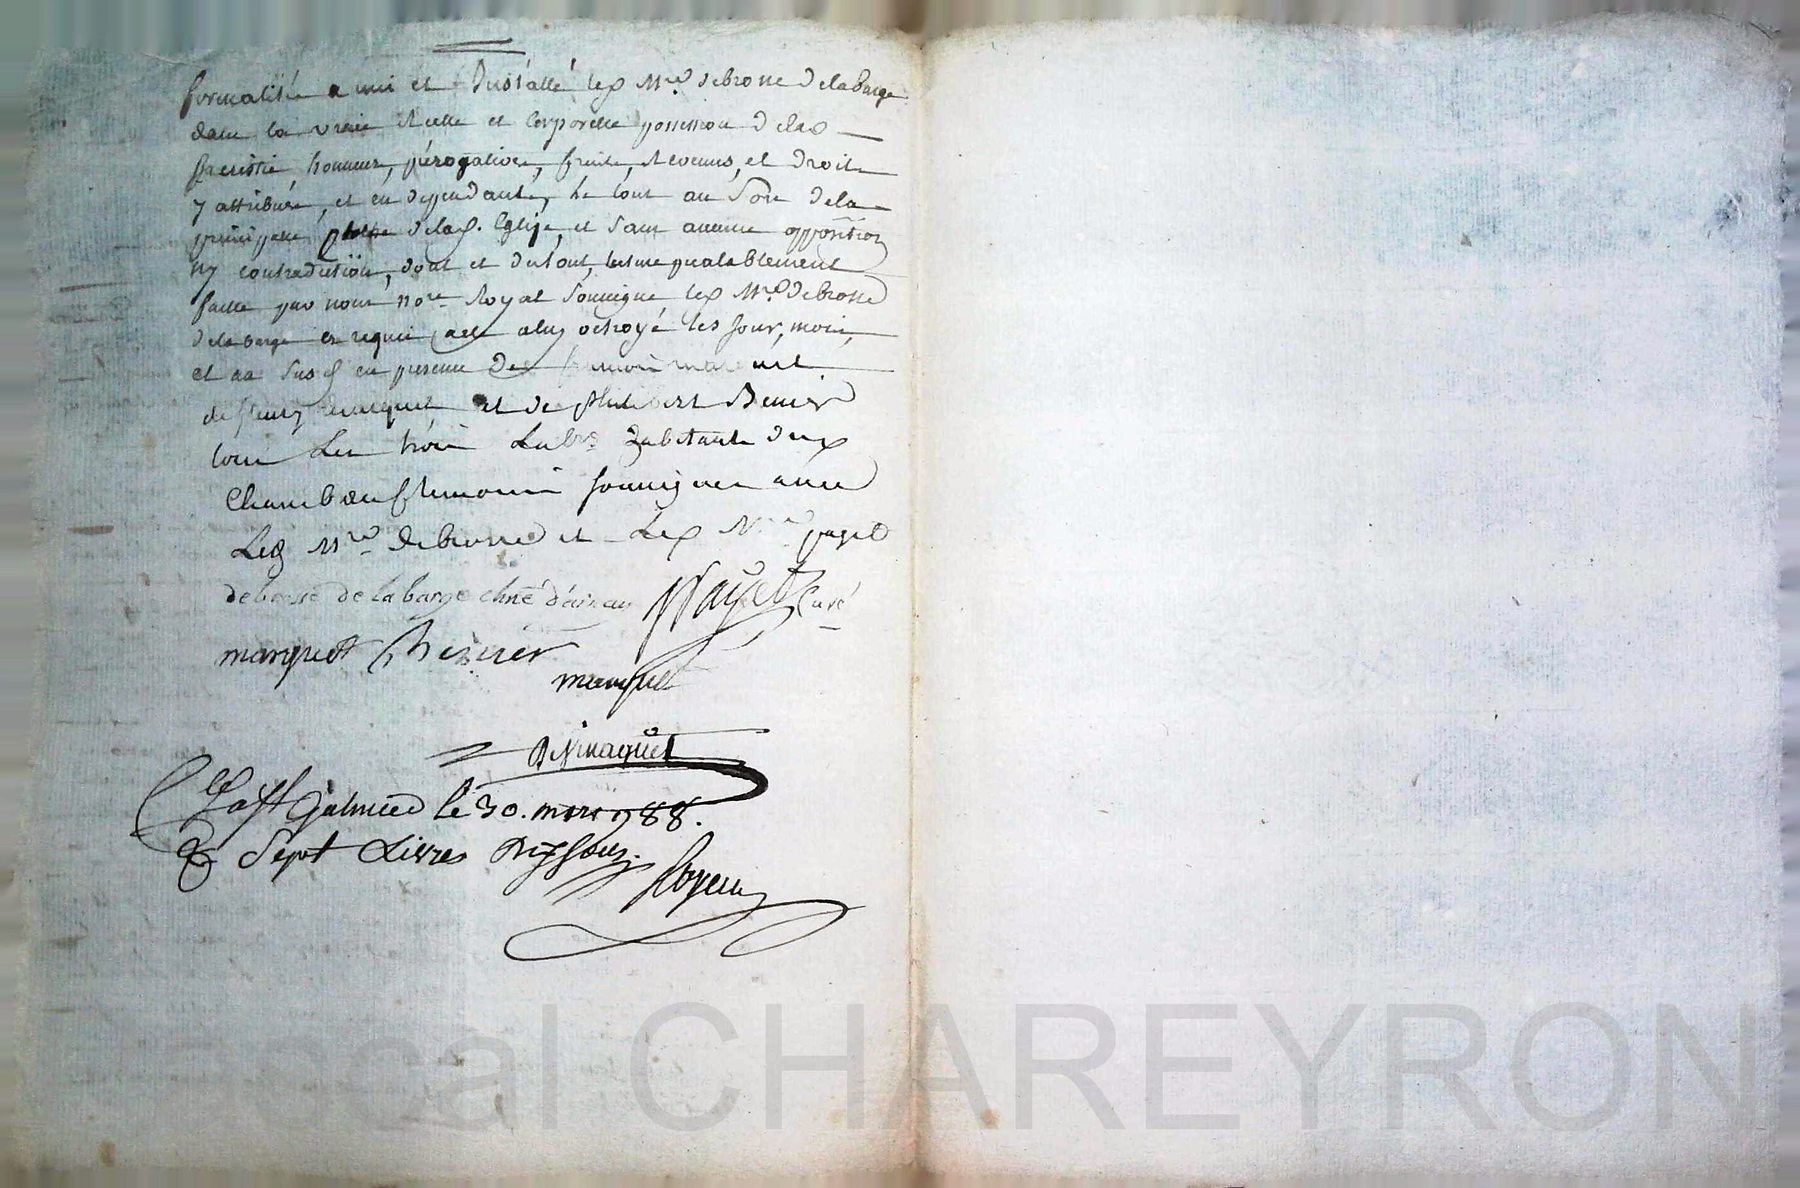 formalités a mis et Installé led Mre debrosse delabarge
dans la vraie Réelle et Corporelle possession delad
sacristie, honneurs, pérogatives, fruits, Revenus, et droits
y attribués, et en dépendants, le tout au Son dela
principalle Cloche delad. Eglise, et Sans aucune opposition
ny contradiction, dont et dutout, lecture préalablement
faitte par nous nore Royal Soussigné led Mre debrosse
delabarge en requis acte aluy octroyé les jour, mois,
et an Susd en présence De
de marquet et de philibert Benier
tous Les trois Labrs habitants dud
Chambœuf temoins soussignes avec
Led Mre debrosse et Led Mre payet
debrosse de la barge chne d'ainay Payet Curé
marquet Benier
marquet
Denmaquet
Cllé a St Galmier le 30. mars 1788.
R Sept Livres Dix sous.
Pascal CHAREYRON